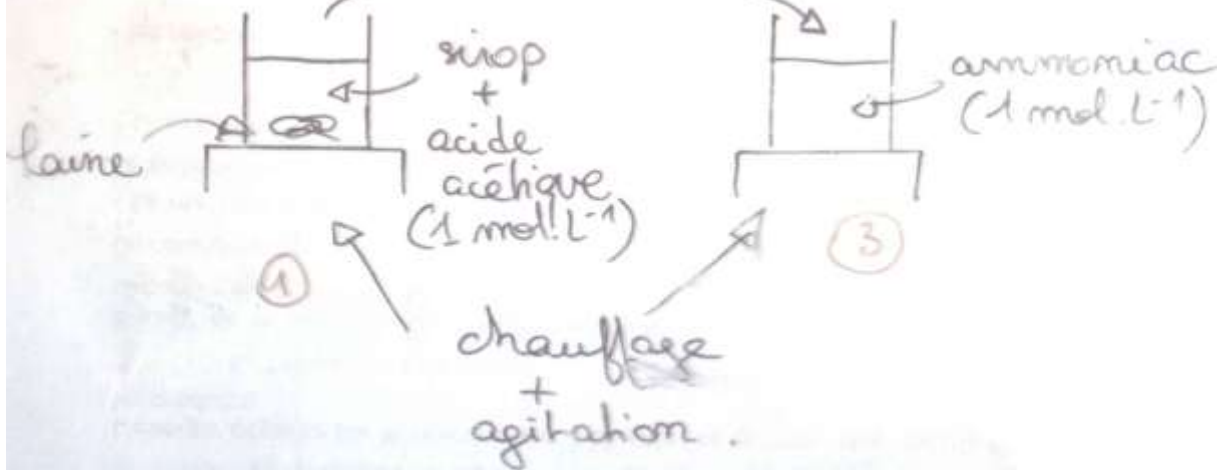 sirop
+
acide
acétique
(1 mol.L⁻¹)
laine
1
ammoniac
(1 mol.L⁻¹)
3
chauffage
+
agitation.